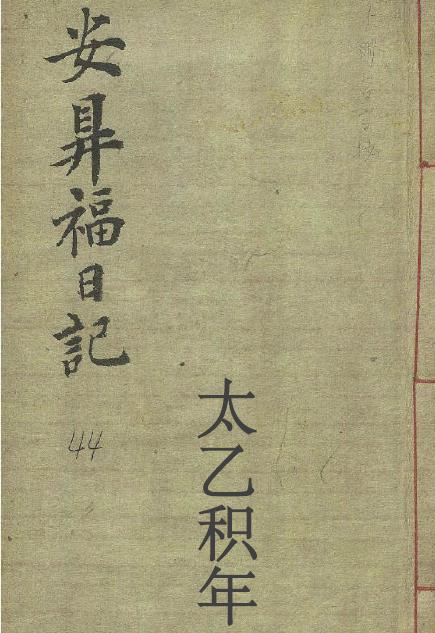 安昇福日記
44
太乙积年